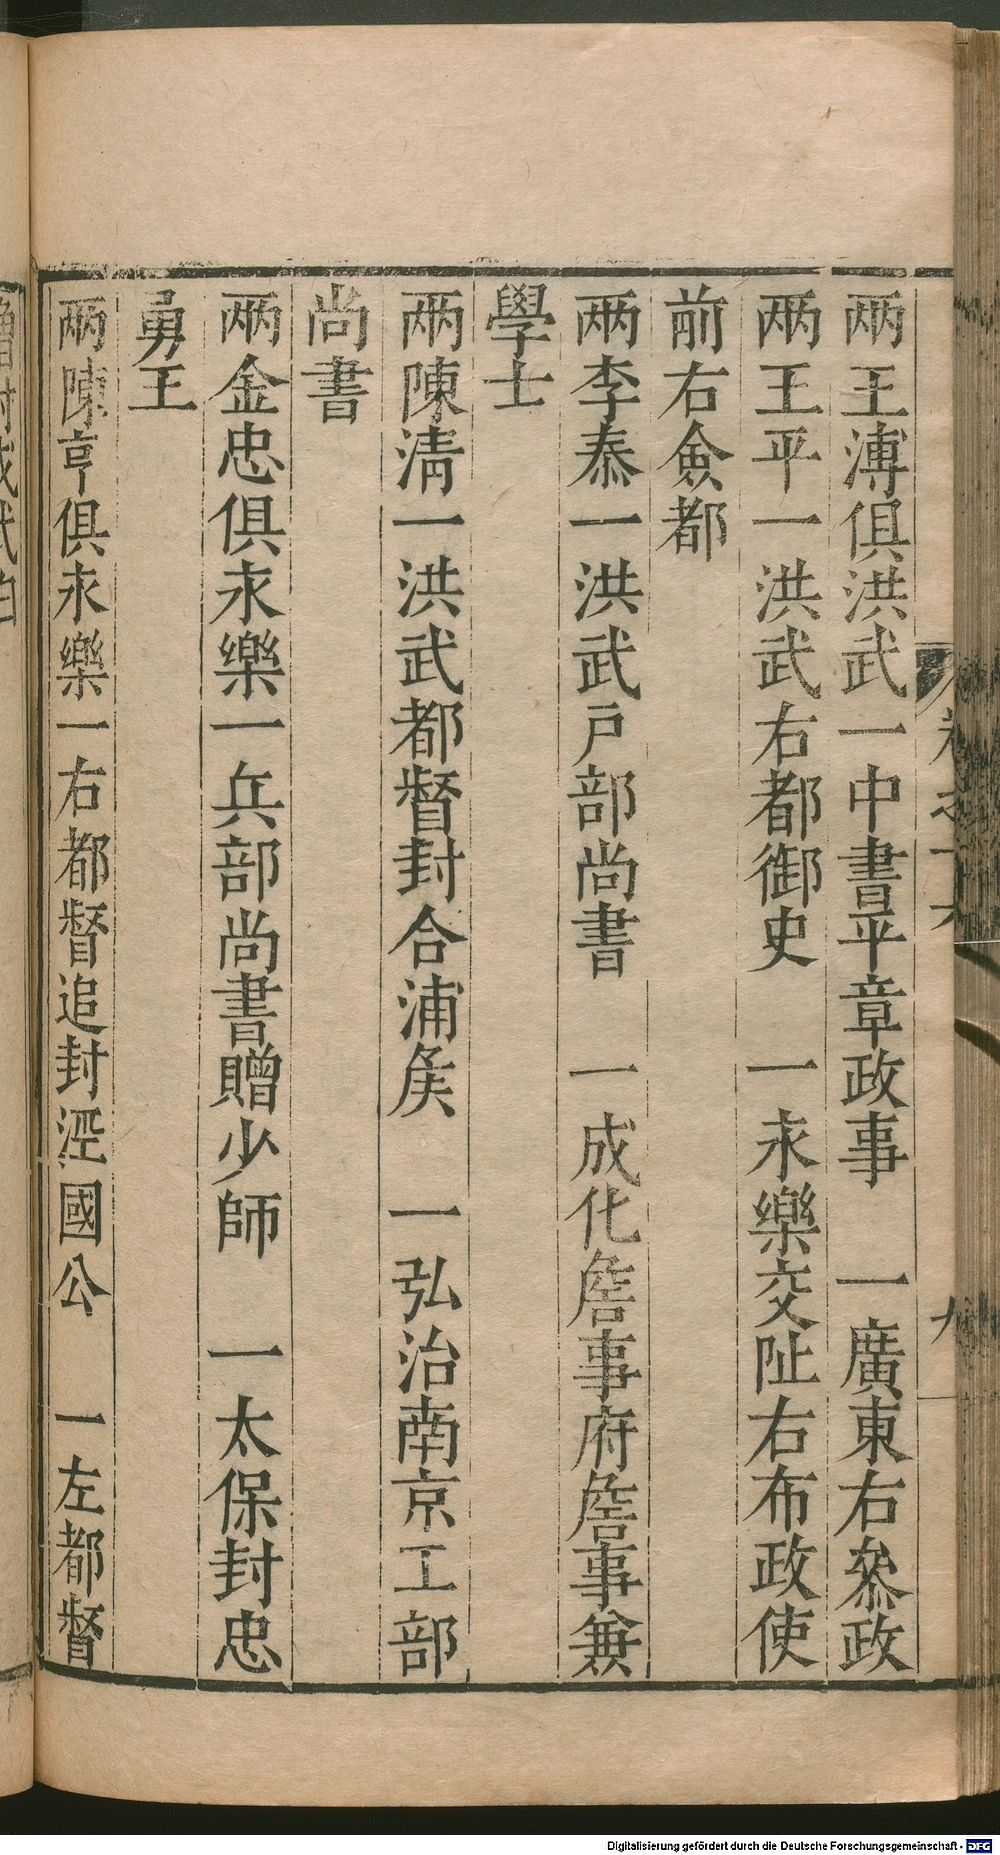 兩王溥俱洪武一中書平章政事　一廣東右叅政
兩王平一洪武右都御史　一永樂交阯右布政使
前右僉都
兩李泰一洪武戸部尚書　一成化詹事府詹事兼
學士
兩陳清一洪武都督封合浦矦　一弘治南京工部
尚書
兩金忠俱永樂一兵部尚書贈少師　一太保封忠
勇王
兩陳亨俱永樂一右都督追封涇國公　一左都督
Digitalisierung gefördert durch die Deutsche Forschungsgemeinschaft - DFG